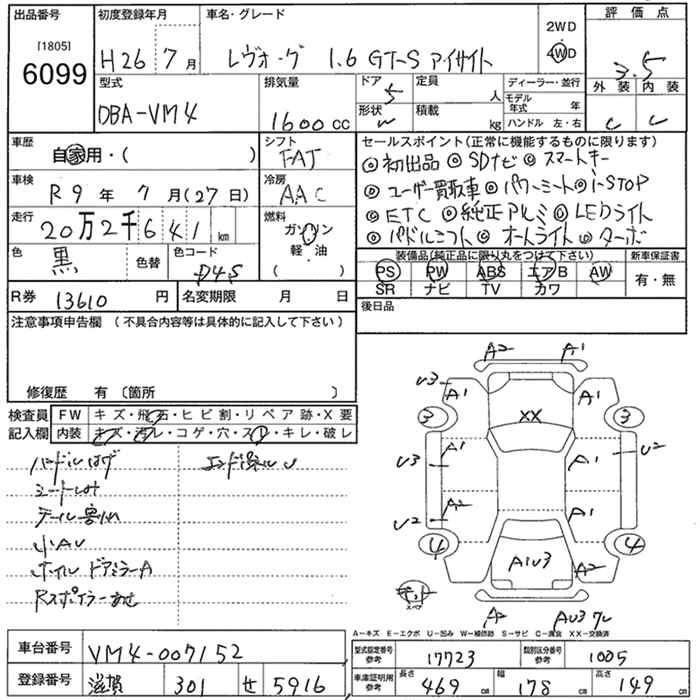 出品番号 初度登録年月 車名・グレード 2WD 評価点
[1805] H26 年 7月 レヴォーグ 1.6 GT-S アイサイト 4WD 3.5
6099
型式 排気量 ドア 5 定員 人 ディーラー・並行 外装 内装
DBA-VM4 1600cc 形状 W 積載 kg モデル年式 年 C C
ハンドル 左・右
車歴 シフト セールスポイント(正常に機能するものに限ります)
自家用・( ) FAT ◎初出品 ◎SDナビ ◎スマートキー
車検 冷房 ◎ユーザー買取車 ◎パワーシート ◎i-STOP
R9年 7月(27日) AAC ◎ETC ◎純正アルミ ◎LEDライト
走行 燃料 ◎パドルシフト ◎オートライト ◎ターボ
20万2千641km ガソリン
軽・油
( )
色 黒 色替 色コード D4S
装備品(純正品に限り丸をつけて下さい) 新車保証書
PS PW ABS エアB AW 有・無
SR ナビ TV カワ
R券 13610円 名変期限 月 日 後日品
注意事項申告欄(不具合内容等は具体的に記入して下さい)
修復歴 有〔箇所 〕
検査員 FW キズ・飛石・ヒビ割・リペア跡・X要
記入欄 内装 キズ・汚レ・コゲ・穴・スレ・キレ・破レ
ハンドルはげ
シートしみ
小AU
ホイル ドアミラーA
A2 A1
U3 A1 A1
3 XX 3
A1 A1 U2
U3
A2 A1
U2
4 A1U3 A2 4
キット
スペア
A2 AU3
A-キズ E-エクボ U-凹み W-補修跡 S-サビ C-腐食 XX-交換済
車台番号 VM4-007152 型式指定番号 参考 17723 類別区分番号 参考 1005
登録番号 滋賀 301 せ 5916 車庫証明用 参考 長さ 469cm 幅 178cm 高さ 149cm